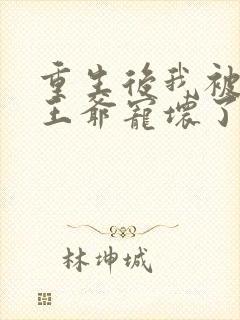 重生後我被
王爺寵壞了
林坤城